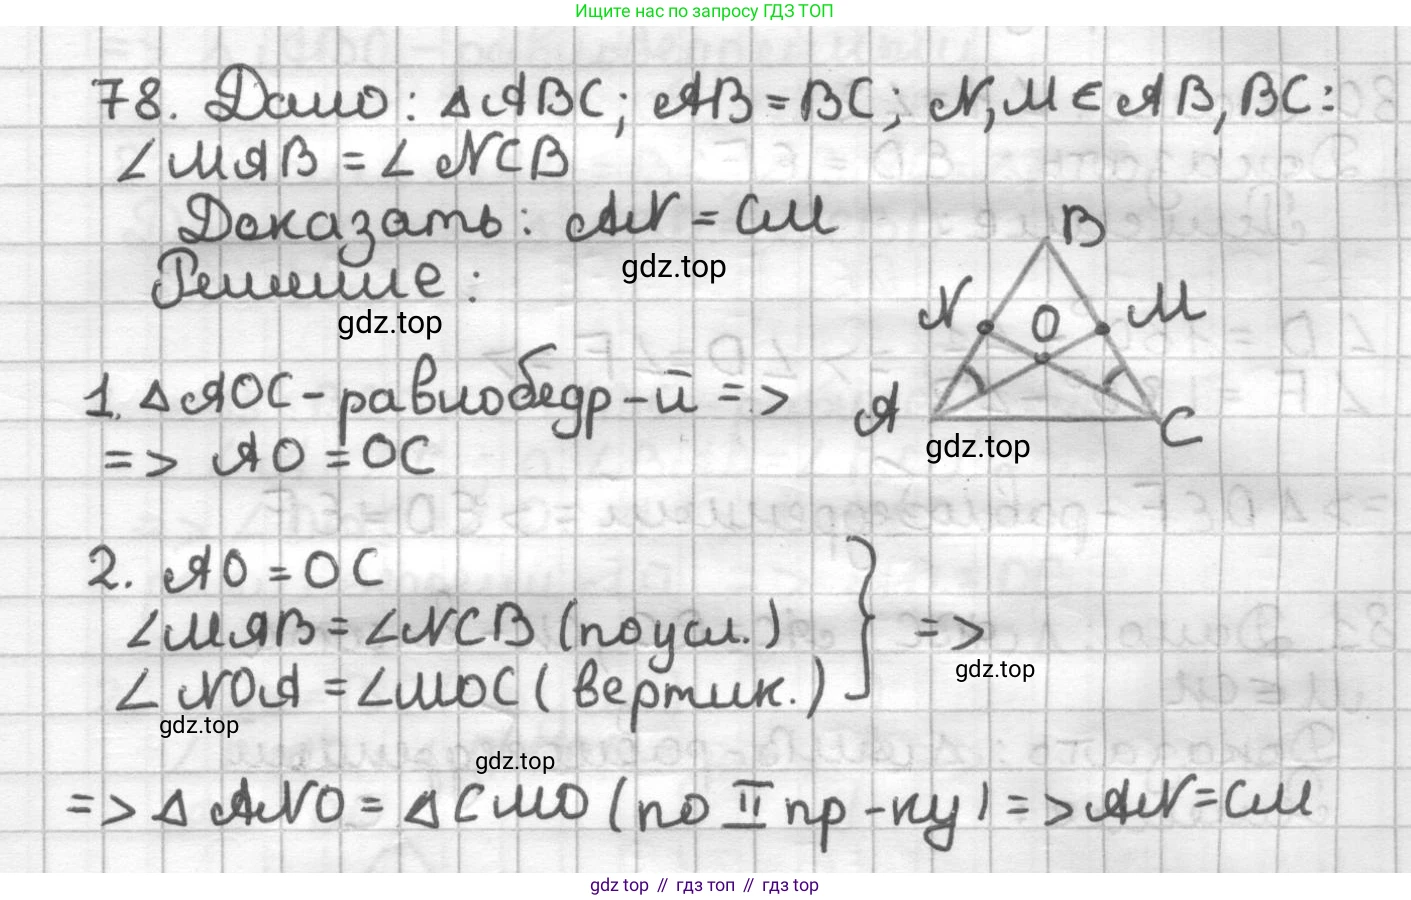 Ищите нас по запросу ГДЗ ТОП
78. Дано: ΔABC; AB = BC; N, M ∈ AB, BC:
∠MAB = ∠NCB
Доказать: AN = CM
gdz.top
Решение:
gdz.top
B
N
O
M
A
C
gdz.top
1. ΔAOC - равнобедр-й =>
=> AO = OC
2. AO = OC
∠MAB = ∠NCB (по усл.)
=>
gdz.top
∠NOA = ∠MOC (вертик.)
gdz.top
gdz.top
=> ΔANO = ΔCMO (по II пр-ку) => AN = CM
gdz.top // гдз топ // гдз top